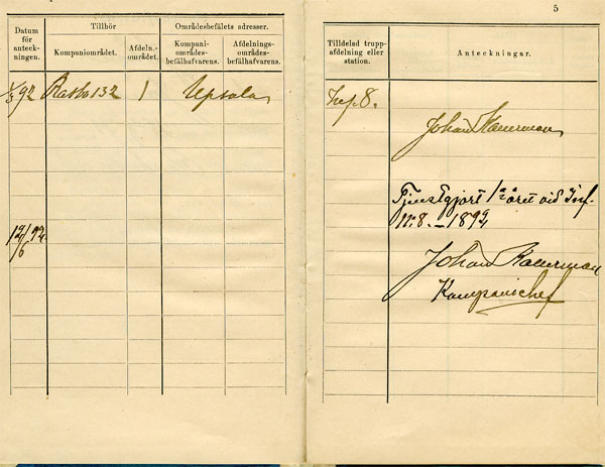 Datum för anteck- ningen.
Tillhör
Kompaniområdet.
Afdeln.- området.
Områdesbefälets adresser.
Kompani- områdes- befälhafvarens.
Afdelnings- områdes- befälhafvarens.
92 132 1 Upsala
12/6 92.
5
Tilldelad trupp- afdelning eller station.
Anteckningar.
Inf. 8.
Johan
Tjenstgjort 1:a året vid Inf.
N:r 8. — 1892
Johan
Kompanichef